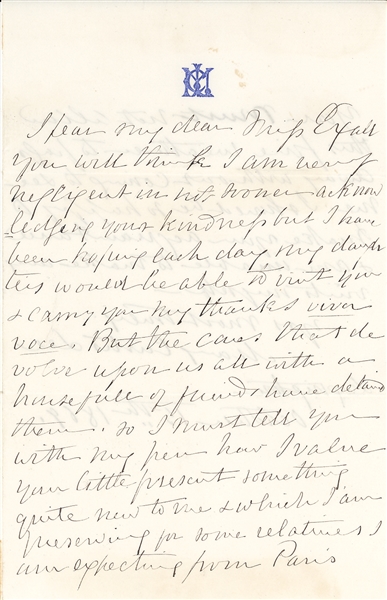 I fear my dear Miss Exall
you will think I am very
negligent in not sooner acknow
ledging your kindness but I have
been hoping each day my daugh
ters would be able to visit you
& carry you my thanks viva
voce. But the cares that de
volve upon us all with a
housefull of friends have detaind
them. so I must tell you
with my pen how I value
your little present something
quite new to me & which I am
preserving for some relatives I
am expecting from Paris